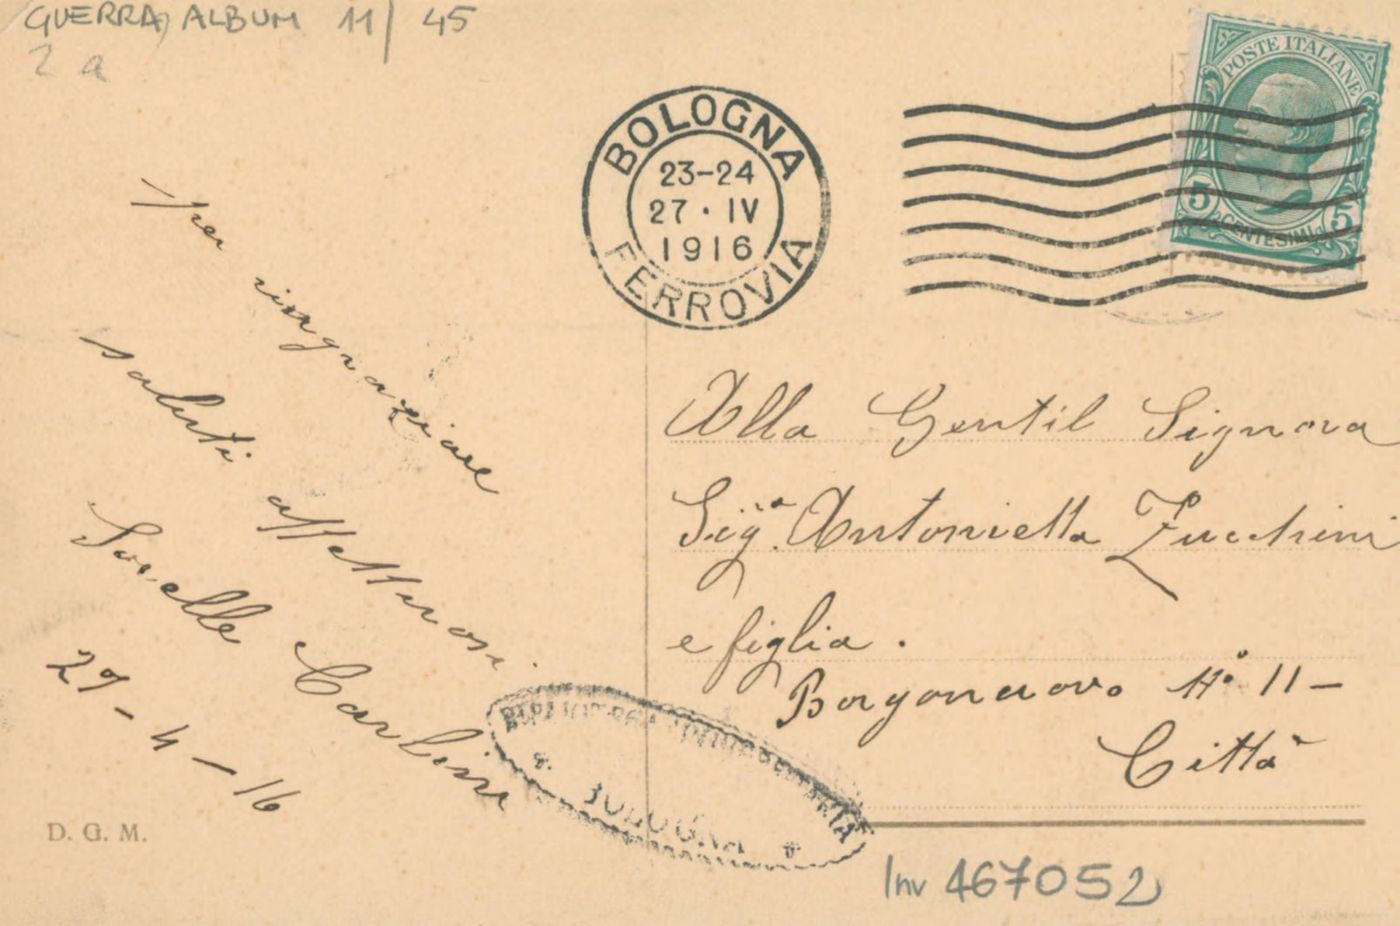 GUERRA, ALBUM 11/45
2 a
POSTE ITALIANE
5 CENTESIMI 5
BOLOGNA
23-24
27 · IV
1916
FERROVIA
Per ringraziare
saluti affettuosi
Sorelle Carlini
27-4-16
Alla Gentil Signora
Sigª. Antonietta Zucchini
e figlia.
Borgonuovo Nº 11 –
Città
BOLOGNA
D. G. M.
Inv 467052